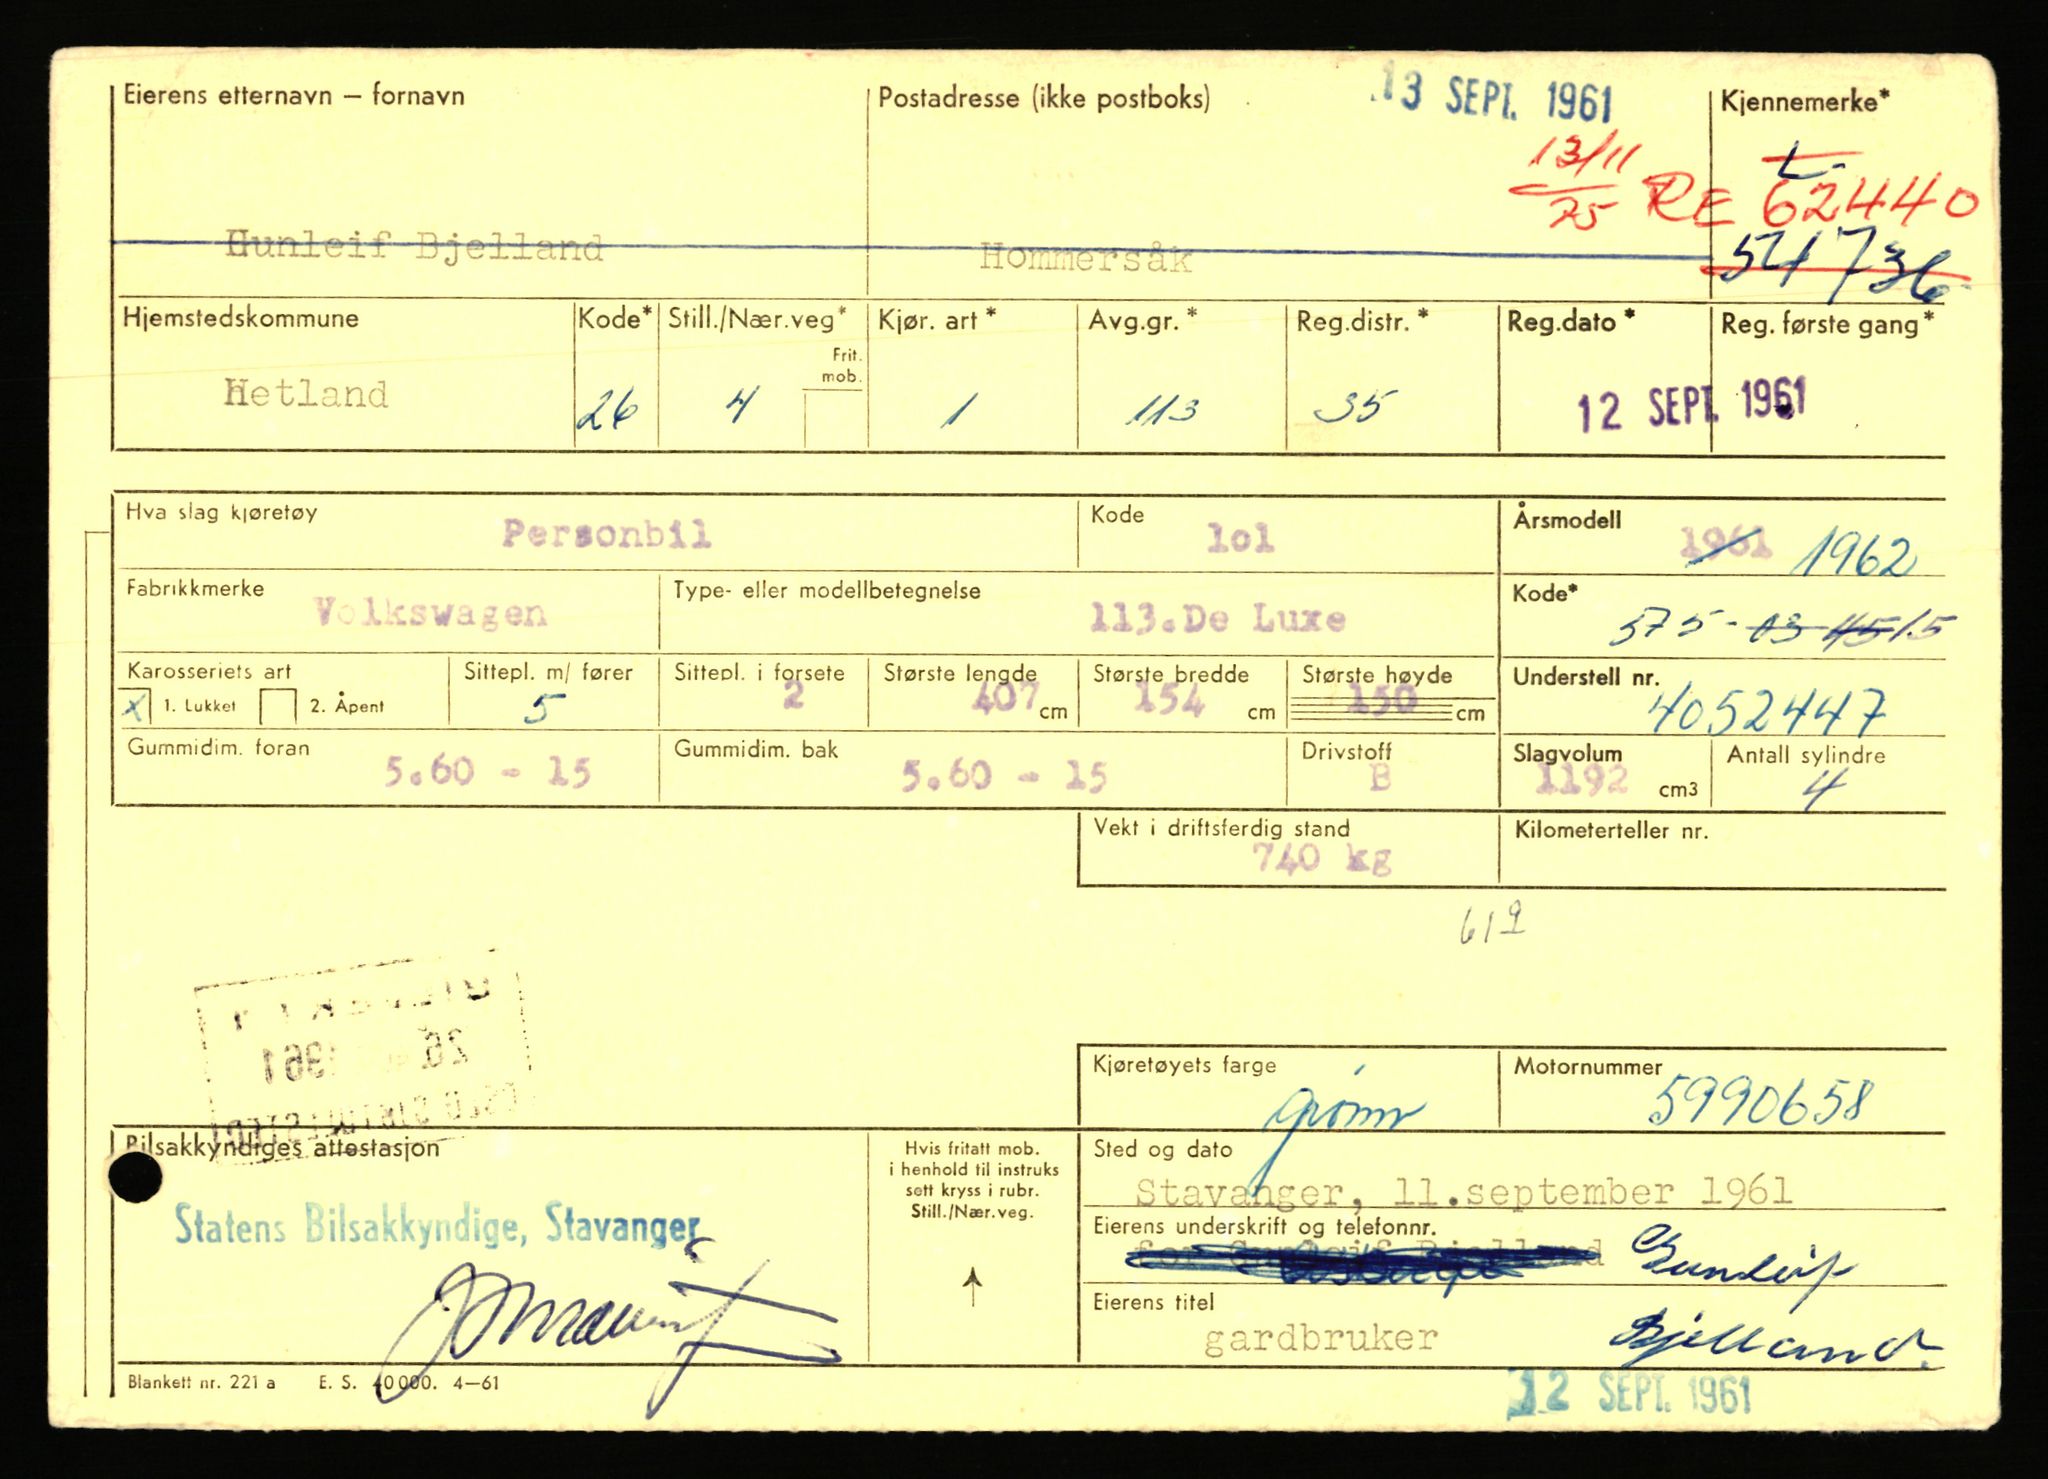 Eierens etternavn – fornavn
Postadresse (ikke postboks)
13 SEPT. 1961
Kjennemerke*
13/11
75
RE 62440
L-
54736
Gunleif Bjelland
Hommersåk
Hjemstedskommune
Kode*
Still./Nær.veg*
Kjør. art*
Avg.gr.*
Reg.distr.*
Reg.dato*
Reg. første gang*
Frit.
mob.
Hetland
26
4
1
113
35
12 SEPT. 1961
Hva slag kjøretøy
Personbil
Kode
lol
Årsmodell
1961 1962
Fabrikkmerke
Volkswagen
Type- eller modellbetegnelse
113.De Luxe
Kode*
575-03 45 15
Karosseriets art
x 1. Lukket 2. Åpent
Sittepl. m/ fører
5
Sittepl. i forsete
2
Største lengde
407 cm
Største bredde
154 cm
Største høyde
150 cm
Understell nr.
4052447
Gummidim. foran
5.60 - 15
Gummidim. bak
5.60 - 15
Drivstoff
B
Slagvolum
1192 cm3
Antall sylindre
4
Vekt i driftsferdig stand
740 kg
Kilometerteller nr.
619
26
1961
Kjøretøyets farge
grønn
Motornummer
5990658
Bilsakkyndiges attestasjon
Statens Bilsakkyndige, Stavanger
Hvis fritatt mob.
i henhold til instruks
sett kryss i rubr.
Still./Nær.veg.
Sted og dato
Stavanger, 11.september 1961
Eierens underskrift og telefonnr.
for Gunleif Bjelland
Gunleif
Bjelland
Eierens titel
gardbruker
Blankett nr. 221 a E. S. 40 000. 4—61
12 SEPT. 1961